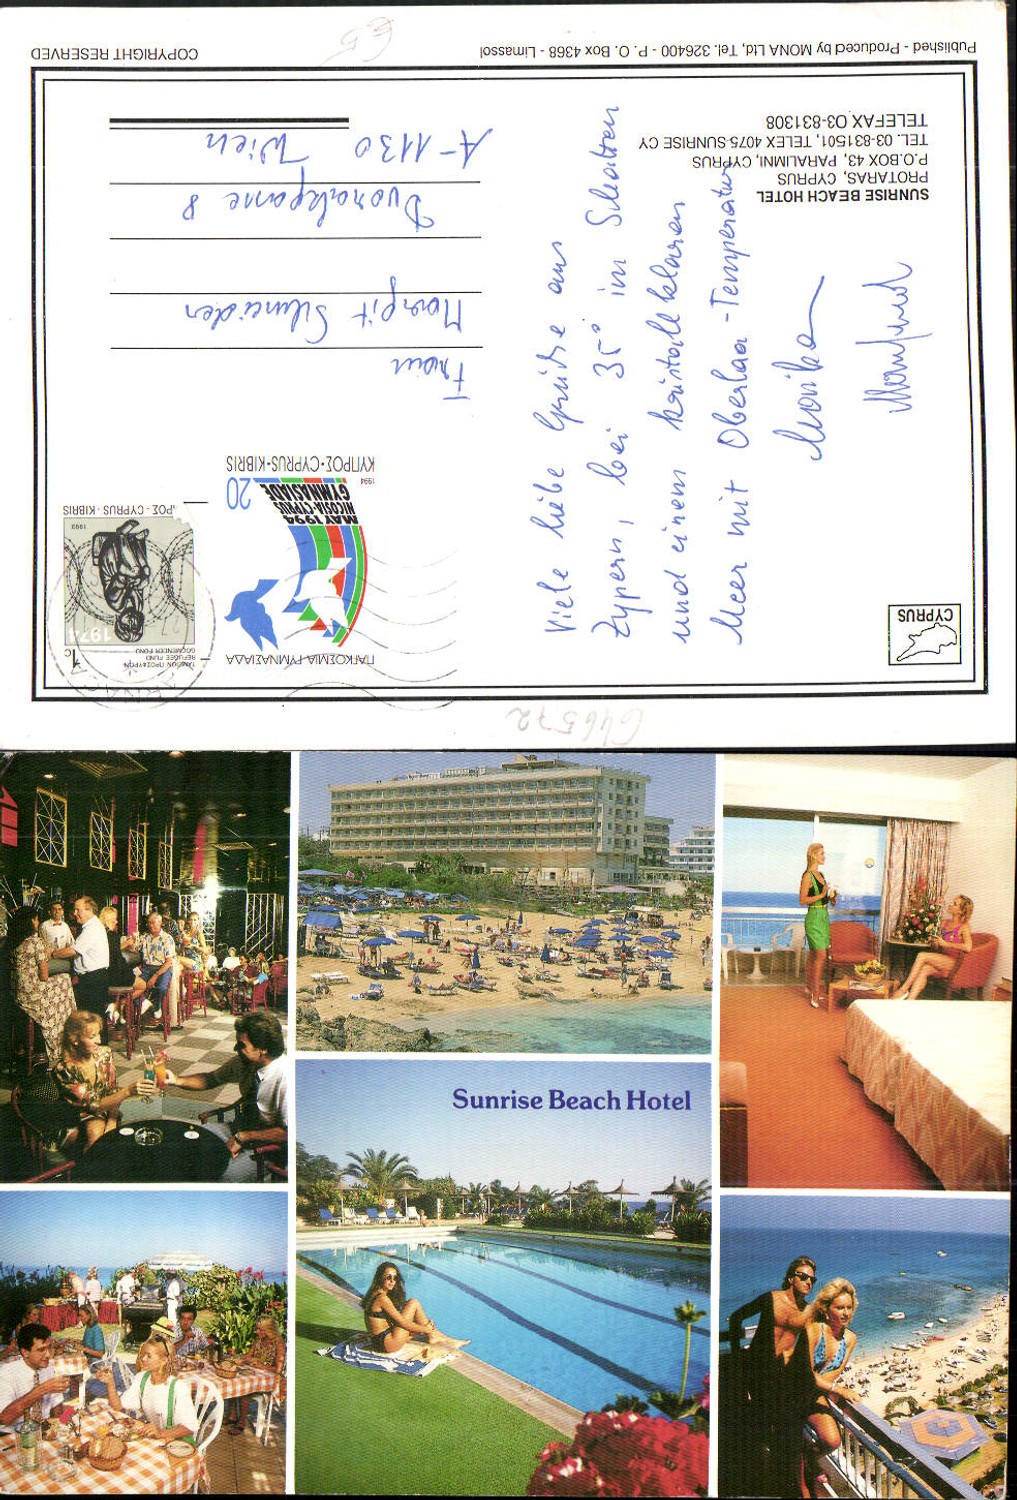 Published - Produced by MONA Ltd, Tel. 326400 - P. O. Box 4368 - Limassol
COPYRIGHT RESERVED
SUNRISE BEACH HOTEL
PROTARAS, CYPRUS
P.O.BOX 43, PARALIMNI, CYPRUS
TEL. 03-831501, TELEX 4075-SUNRISE CY
TELEFAX 03-831308
CYPRUS
Viele liebe Grüße aus
Zypern, bei 35° im Schatten
und einem kristallklaren
Meer mit Oberlaa-Temperatur
Marika
Manfred
ΠΑΓΚΟΣΜΙΑ ΓΥΜΝΑΣΙΑΔΑ
MAY 1994
NICOSIA-CYPRUS
GYMNASIADE
20
1994
ΚΥΠΡΟΣ·CYPRUS·KIBRIS
1c
ΤΑΜΕΙΟΝ ΠΡΟΣΦΥΓΩΝ
REFUGEE FUND
GÖÇMENLER FONU
1974
1993
ΠΡΟΣ - CYPRUS - KIBRIS
Frau
Margit Schneider
Dvorakgasse 8
A-1130 Wien
646572
€5
Sunrise Beach Hotel